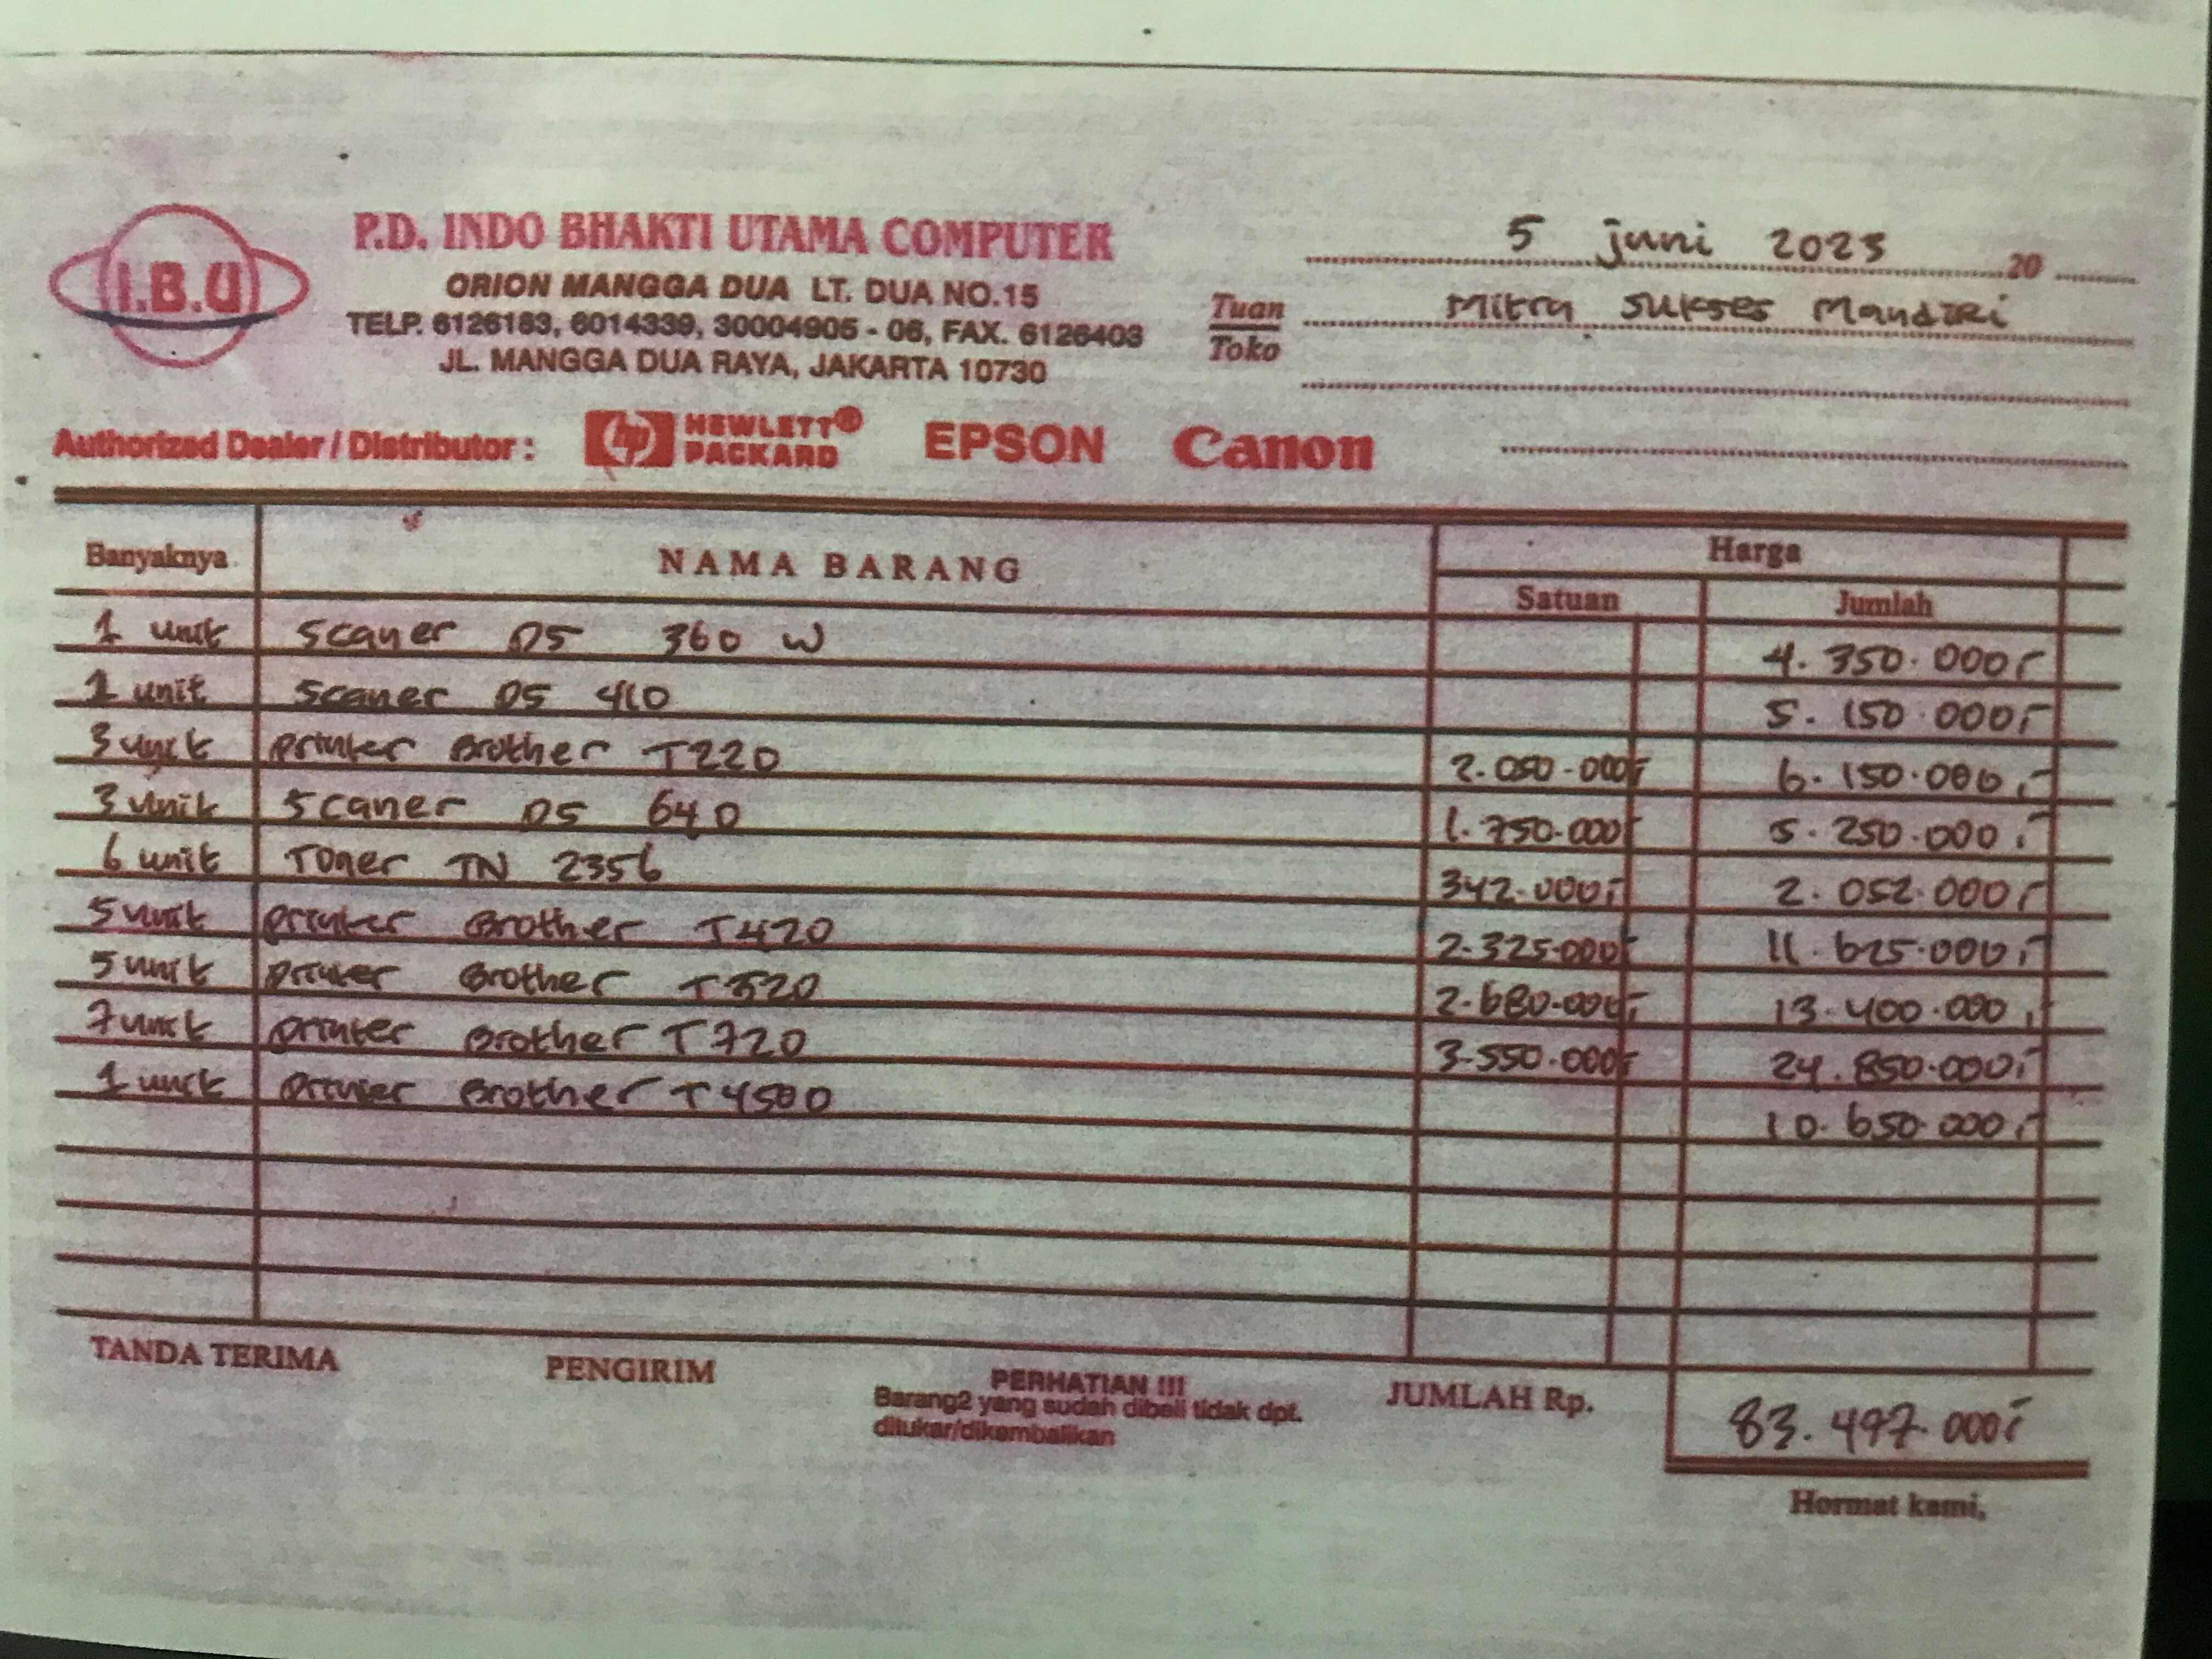 I.B.U
P.D. INDO BHAKTI UTAMA COMPUTER
ORION MANGGA DUA LT. DUA NO.15
TELP. 6126183, 6014339, 30004905 - 06, FAX. 6126403
JL. MANGGA DUA RAYA, JAKARTA 10730
5 juni 2023 20
Tuan Mitra Sukses Mandiri
Toko
Authorized Dealer / Distributor : hp HEWLETT® PACKARD EPSON Canon
Banyaknya NAMA BARANG Harga
Satuan Jumlah
1 unit Scaner DS 360 W 4.350.000,-
1 unit Scaner DS 410 5.150.000,-
3 unit printer Brother T220 2.050.000,- 6.150.000,-
3 unit Scaner DS 640 1.750.000,- 5.250.000,-
6 unit Toner TN 2356 342.000,- 2.052.000,-
5 unit printer Brother T420 2.325.000,- 11.625.000,-
5 unit printer Brother T520 2.680.000,- 13.400.000,-
7 unit printer Brother T720 3.550.000,- 24.850.000,-
1 unit printer Brother T4500 10.650.000,-
TANDA TERIMA PENGIRIM PERHATIAN !!! JUMLAH Rp. 83.497.000,-
Barang2 yang sudah dibeli tidak dpt.
ditukar/dikembalikan
Hormat kami,